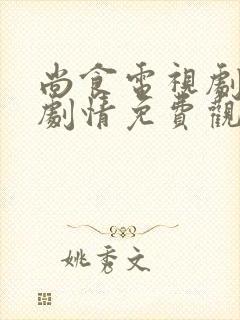 尚食電視劇
劇情免費觀
姚秀文